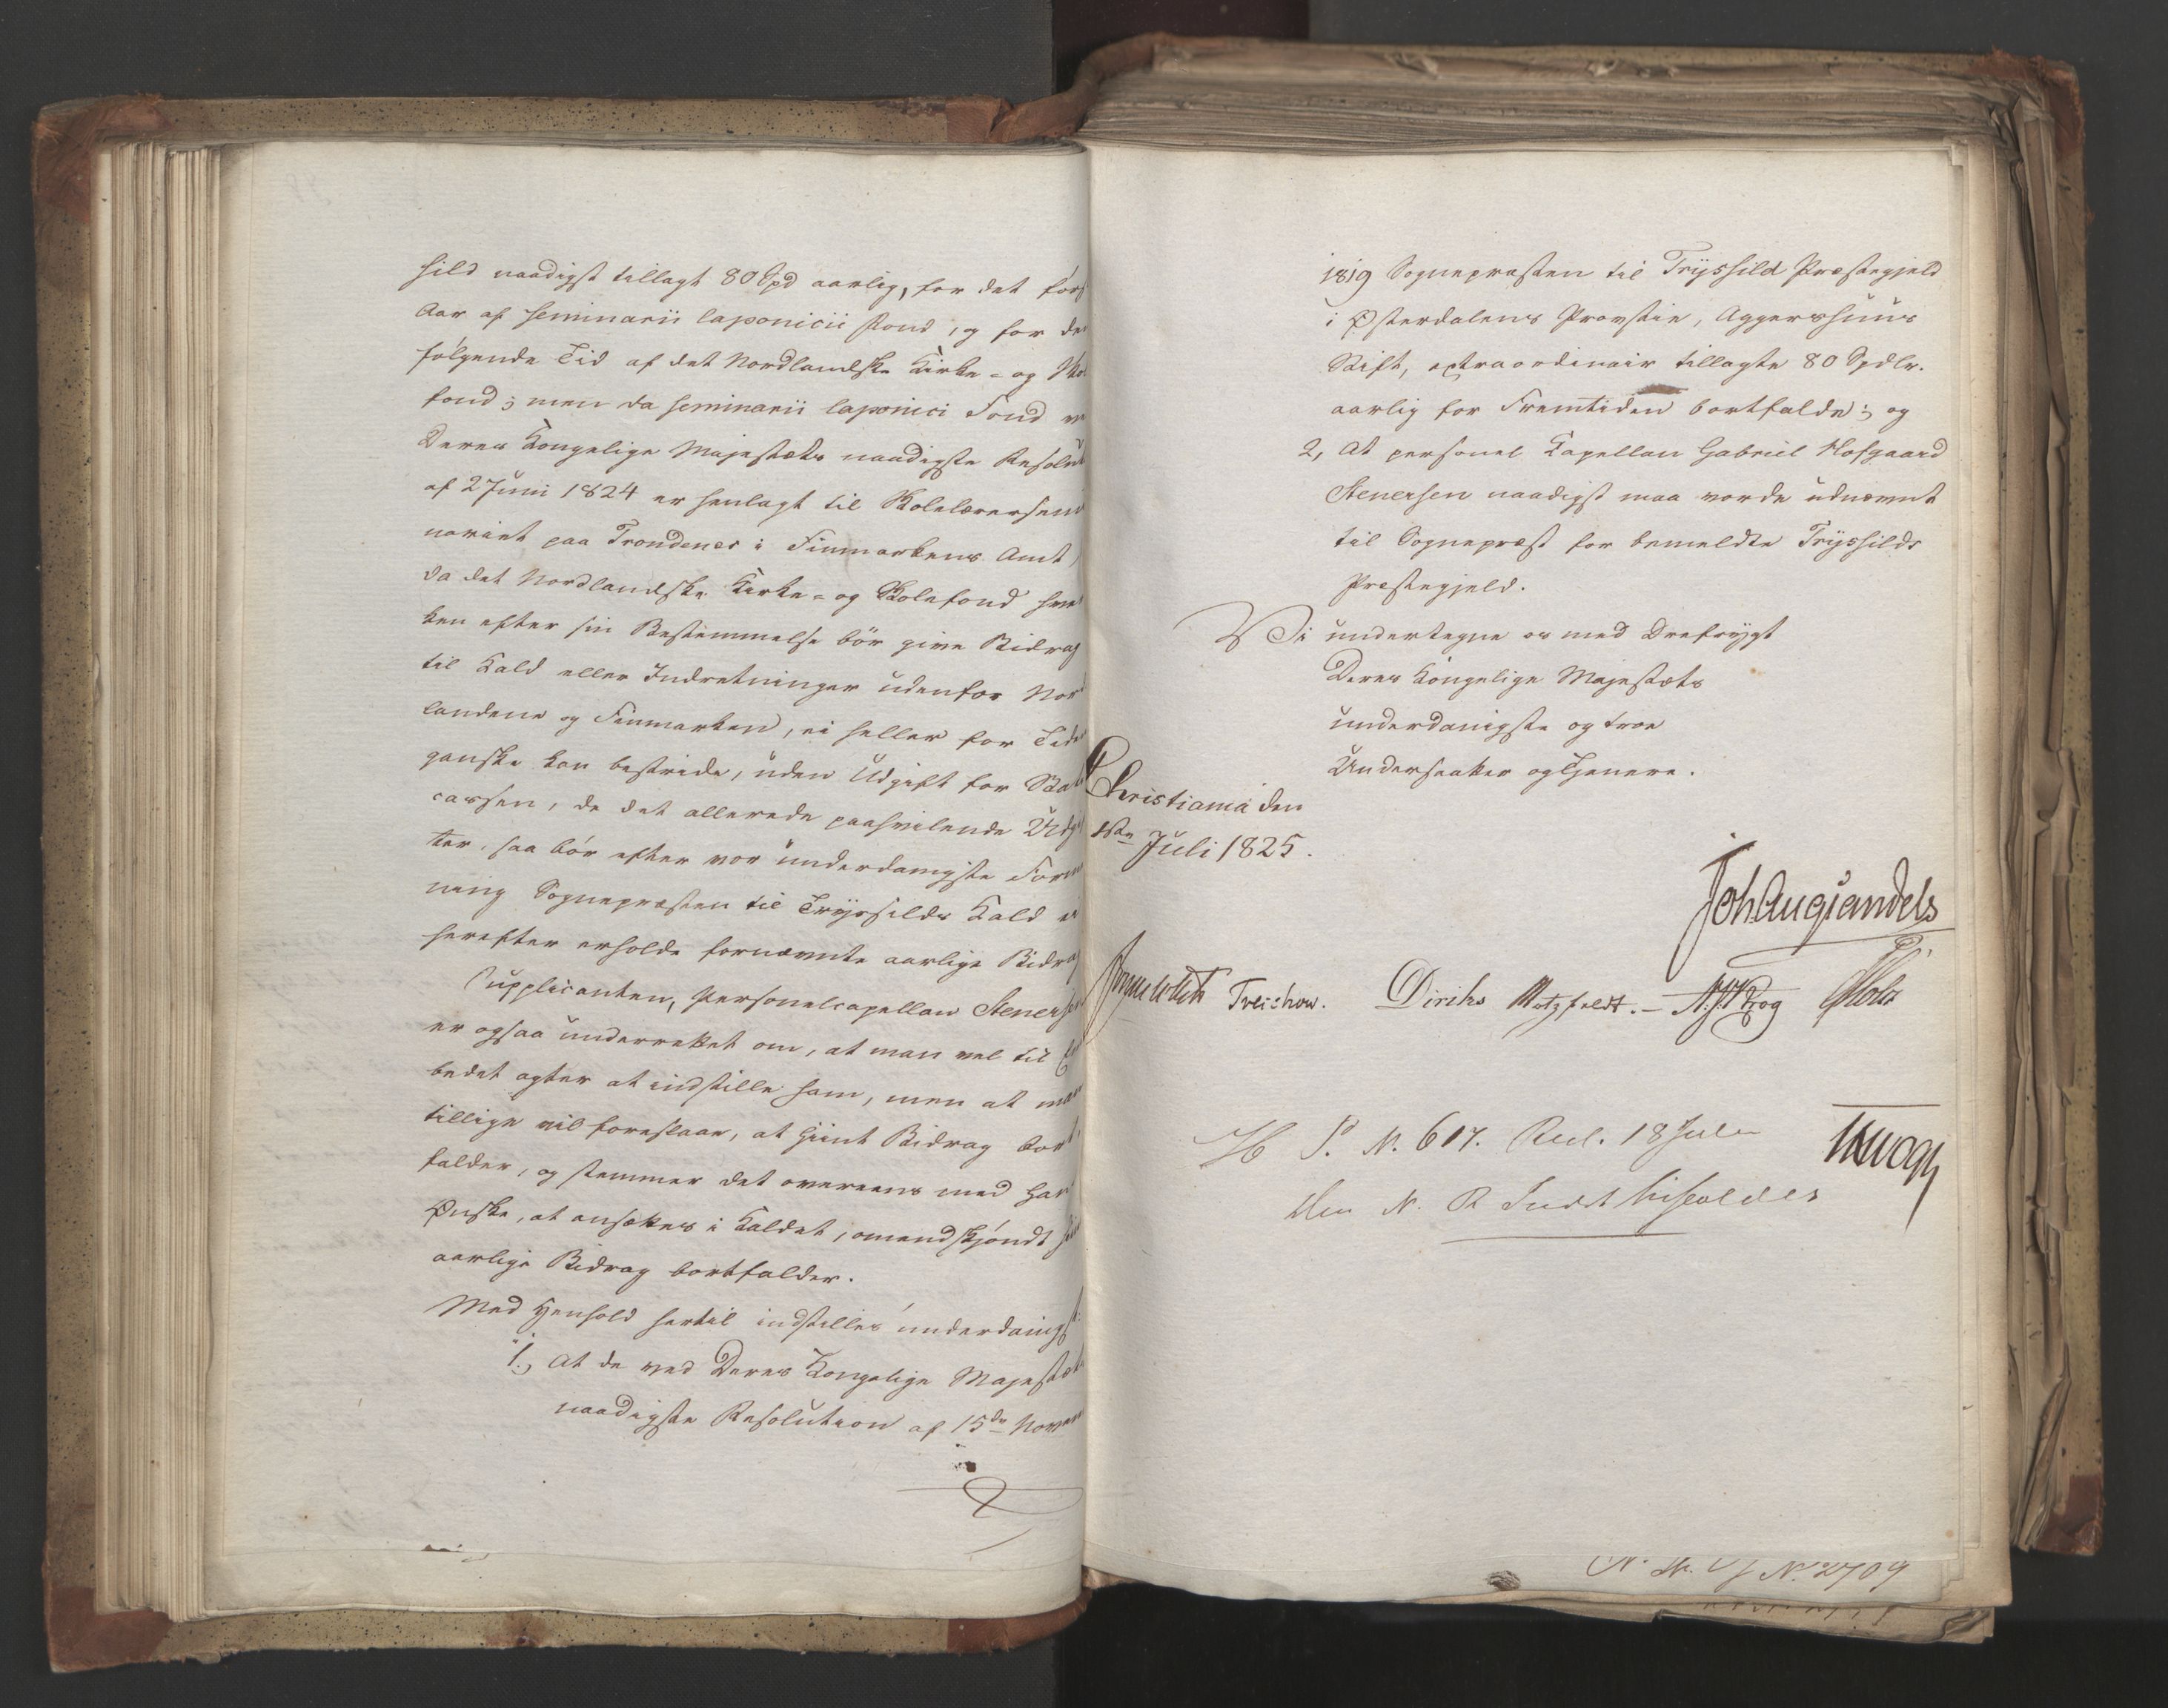 hild naadigst tillagt 80 Spd aarlig, for det förs
Aar af seminarii laponicii Fond, og for den
følgende Tid af det Nordlandske Kirke- og Skole
fond; men da seminarii laponici Fond ve
Deres Kongelige Majestæts naadigste Resolut
af 2 Juni 1824 er henlagt til Skolelærersemi
nariet paa Trondenes i Finmarkens Amt
da det Nordlandske Kirke- og Skolefond hver
ken efter sin Bestemmelse bör give Bidrag
til Kald eller Indretninger udenfor Nord
landene og Finmarken, ei heller for Tiden
ganske kan bestride, uden Udgivt for Stats
cassen, de det allerede paahvilende Udgif
ter, saa bör efter vor underdanigste Forme
ning Sognepræsten til Tryssilds Kald ei
herefter erholde fornævnte aarlige Bidrag
Supplicanten, Personelcapellan Stenersen
er ogsaa underrettet om, at man vel til Em
bedet agter at indstille ham, men at man
tillige vil foreslaae, at hiint Bidrag bort
falder, og stemmer det overeens med Hans
Ønske, at ansættes i Kaldet, omendskjöndt hiint
aarlige Bidrag bortfalder.
Med Henhold hertil indstilles underdanigst:
1., At de ved Deres Kongelige Majestæts
naadigste Resolution af 15de Novem
1819 Sognepræsten til Tryssild Præstegjeld
i Østerdalens Provstie, Aggershuus
Stift, extraordinair tillagte 80 Spdlr.
aarlig for Fremtiden bortfalde; og
2, At personel Kapellan Gabriel Hofgaard
Stenersen naadigst maa vorde udnævnt
til Sognepræst for bemeldte Tryssilds
Præstegjeld.
Vi undertegne os med Dyb frygt
Deres Kongelige Majestæts
underdanigste og troe
Undersaatter og Tjenere.
Christiania den
Juli 1825.
Joh Aug Sandels
Treschow. Diriks Motzfeldt. Krog Holst
N. 617. 18 Juli
Vogt
N. 2709